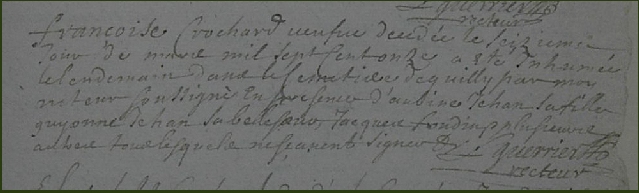 L guerrier
recteur
francoise Crochard veufue decedée le seizieme
jour de mars mil sept cent onze a ete Inhumée
le lendemain dans le semetiere de quilly par moy
recteur soussigné En presence d'aubine Jehan sa fille
guyonne Jehan sa belle soeur, Jacques fondin plusieurs
autres tous lesquels ne scavent signer
L guerrier
recteur